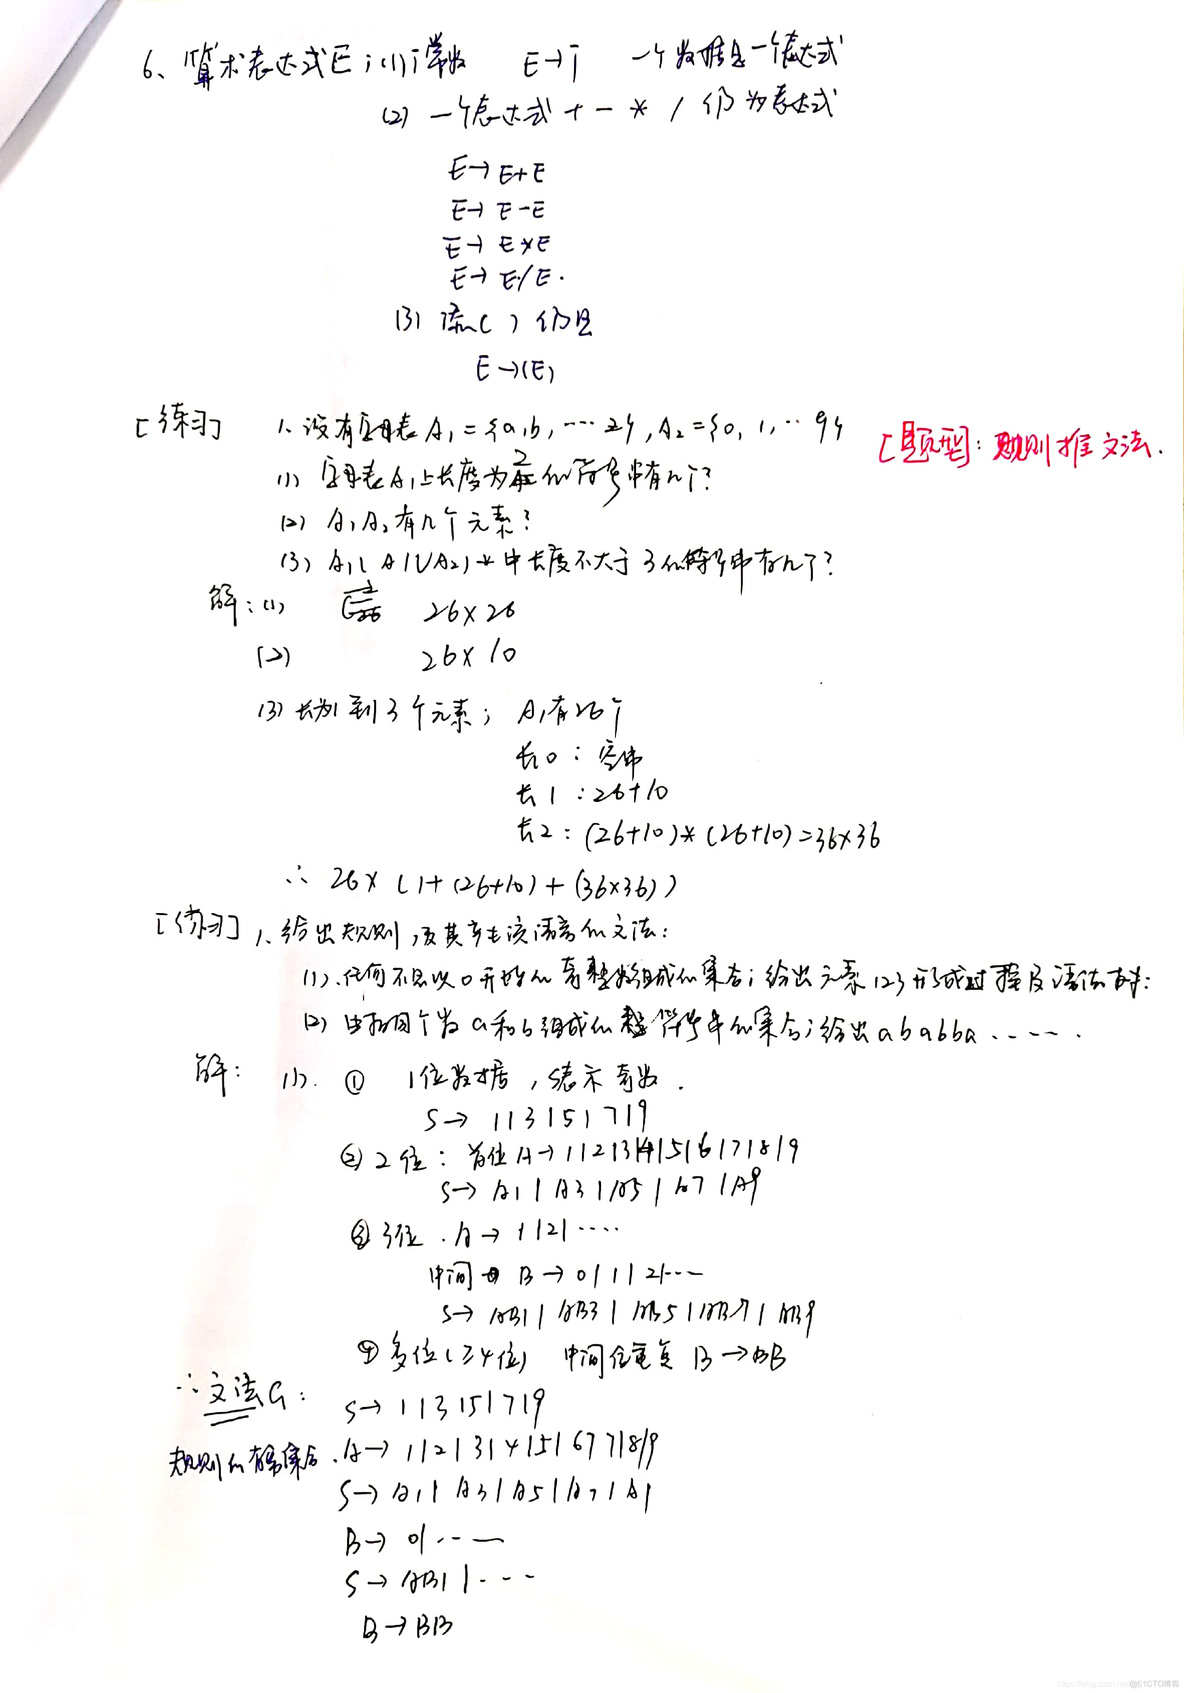 6、算术表达式E;(1)i常数 E→i 一个数据是一个表达式
(2) 一个表达式 + - * / 仍为表达式
E→ E+E
E→ E-E
E→ E*E
E→ E/E.
(3) 添( ) 仍是
E→(E)
[练习] 1、设有字母表 A₁={a,b,…z},A₂={0,1,…9}
[题型]: 规则推文法.
(1) 字母表A₁上长度为2的符号串有几个?
(2) A₁A₂有几个元素?
(3) A₁(A1∪A2)*中长度不大于3的符号串有几个?
解:(1) 26×26
(2) 26×10
(3) 长为1到3个元素; A₁有26个
长0: 空串
长1:26+10
长2: (26+10)*(26+10)=36×36
∴ 26×(1+(26+10)+(36×36))
[练习] 1、给出规则,及其产生该语言的文法:
(1).任何不是以0开始的奇整数组成的集合;给出元素123形成过程及语法树:
(2) 由相同个数a和b组成的符号串的集合;给出ababba……
解: (1). ① 1位数据,S表示奇数.
S→ 1|3|5|7|9
② 2位: 首位A→1|2|3|4|5|6|7|8|9
S→ A1|A3|A5|A7|A9
③ 3位. A→ 1|2|····
中间 B→0|1|2|···
S→ AB1|AB3|AB5|AB7|AB9
④ 多位(≥4位) 中间位重复 B→BB
∴文法G: S→1|3|5|7|9
规则的有集合. A→1|2|3|4|5|6|7|8|9
S→A1|A3|A5|A7|A9
B→ 0|··—
S→AB1|···
B→BB
@51CTO博客